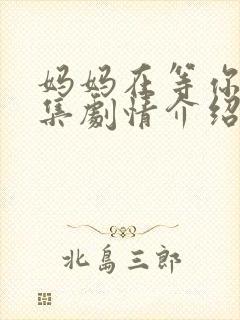 妈妈在等你
集劇情介紹
北島三郎